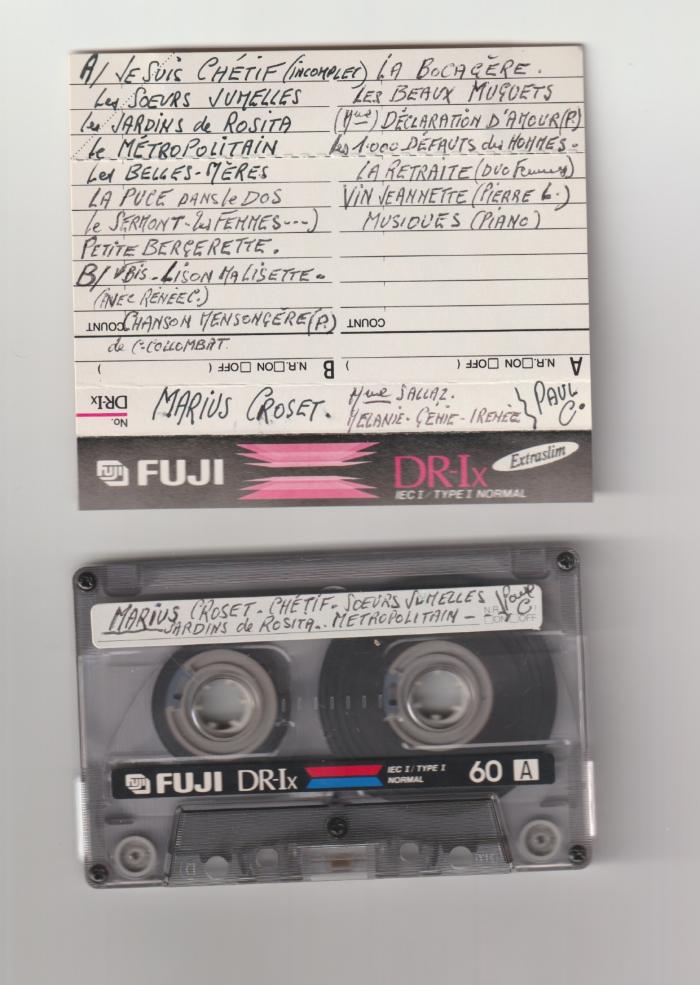 A/ JE SUIS CHÉTIF (INCOMPLET)
Les SOEURS JUMELLES
les JARDINS de ROSITA
Le MÉTROPOLITAIN
Les BELLES-MÈRES
LA PUCE DANS Le DOS
Le SERMONT-(les FEMMES---)
PETITE BERGERETTE.
B/ VBIS-LISON MALISETTE.
(AVEC RENÉE C.)
CHANSON MENSONGÈRE (P.)
de C. COLLOMBAT.
LA BOCAGÈRE.
Les BEAUX MUGUETS
(Mme) DÉCLARATION D'AMOUR (P.)
les 1.000 DÉFAUTS des HOMMES-
LA RETRAITE (DUO Femmes)
VIN JEANNETTE (PIERRE L.)
MUSIQUES (PIANO)
COUNT
COUNT
B N.R. □ ON □ OFF ( )
A N.R. □ ON □ OFF ( )
No. DR-Ix
MARIUS CROSET.
Mme SALLAZ.
MELANIE-GENIE-IRENEE
PAUL C.
FUJI
DR-Ix
Extraslim
IEC I / TYPE I NORMAL
MARIUS CROSET-CHÉTIF-SOEURS JUMELLES
JARDINS de ROSITA.. METROPOLITAIN-
Paul C.
N.R.
□ON□OFF
FUJI DR-Ix
IEC I / TYPE I
NORMAL
60 A